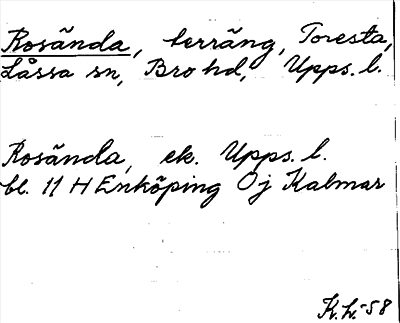 Rosända, terräng, Toresta,
Låssa sn, Bro hd, Upps. l.
Rosända, ek. Upps. l.
bl. 11 H Enköping Öj Kalmar
K.H. -58